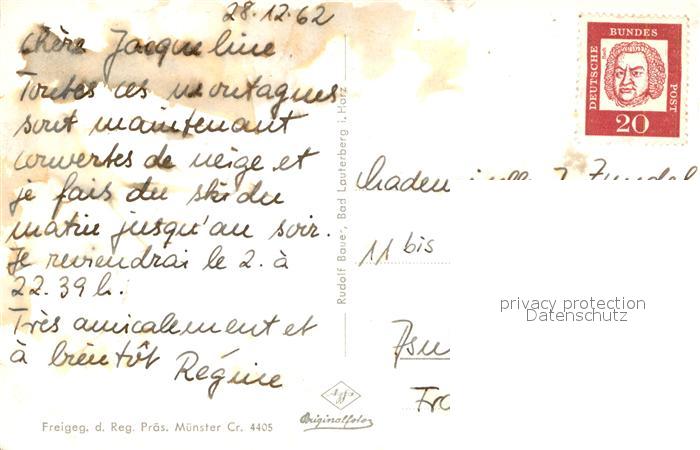 28.12.62
Chère Jacqueline
Toutes ces montagnes
sont maintenant
couvertes de neige et
je fais du ski du
matin jusqu'au soir.
Je reviendrai le 2. à
22.39 h.
Très amicalement et
à bientôt Régine
Freigeg. d. Reg. Präs. Münster Cr. 4405
Rudolf Bauer, Bad Lauterberg i. Harz
Agfa
Originalfoto
DEUTSCHE BUNDES POST
Bach
20
11 bis
privacy protection
Datenschutz